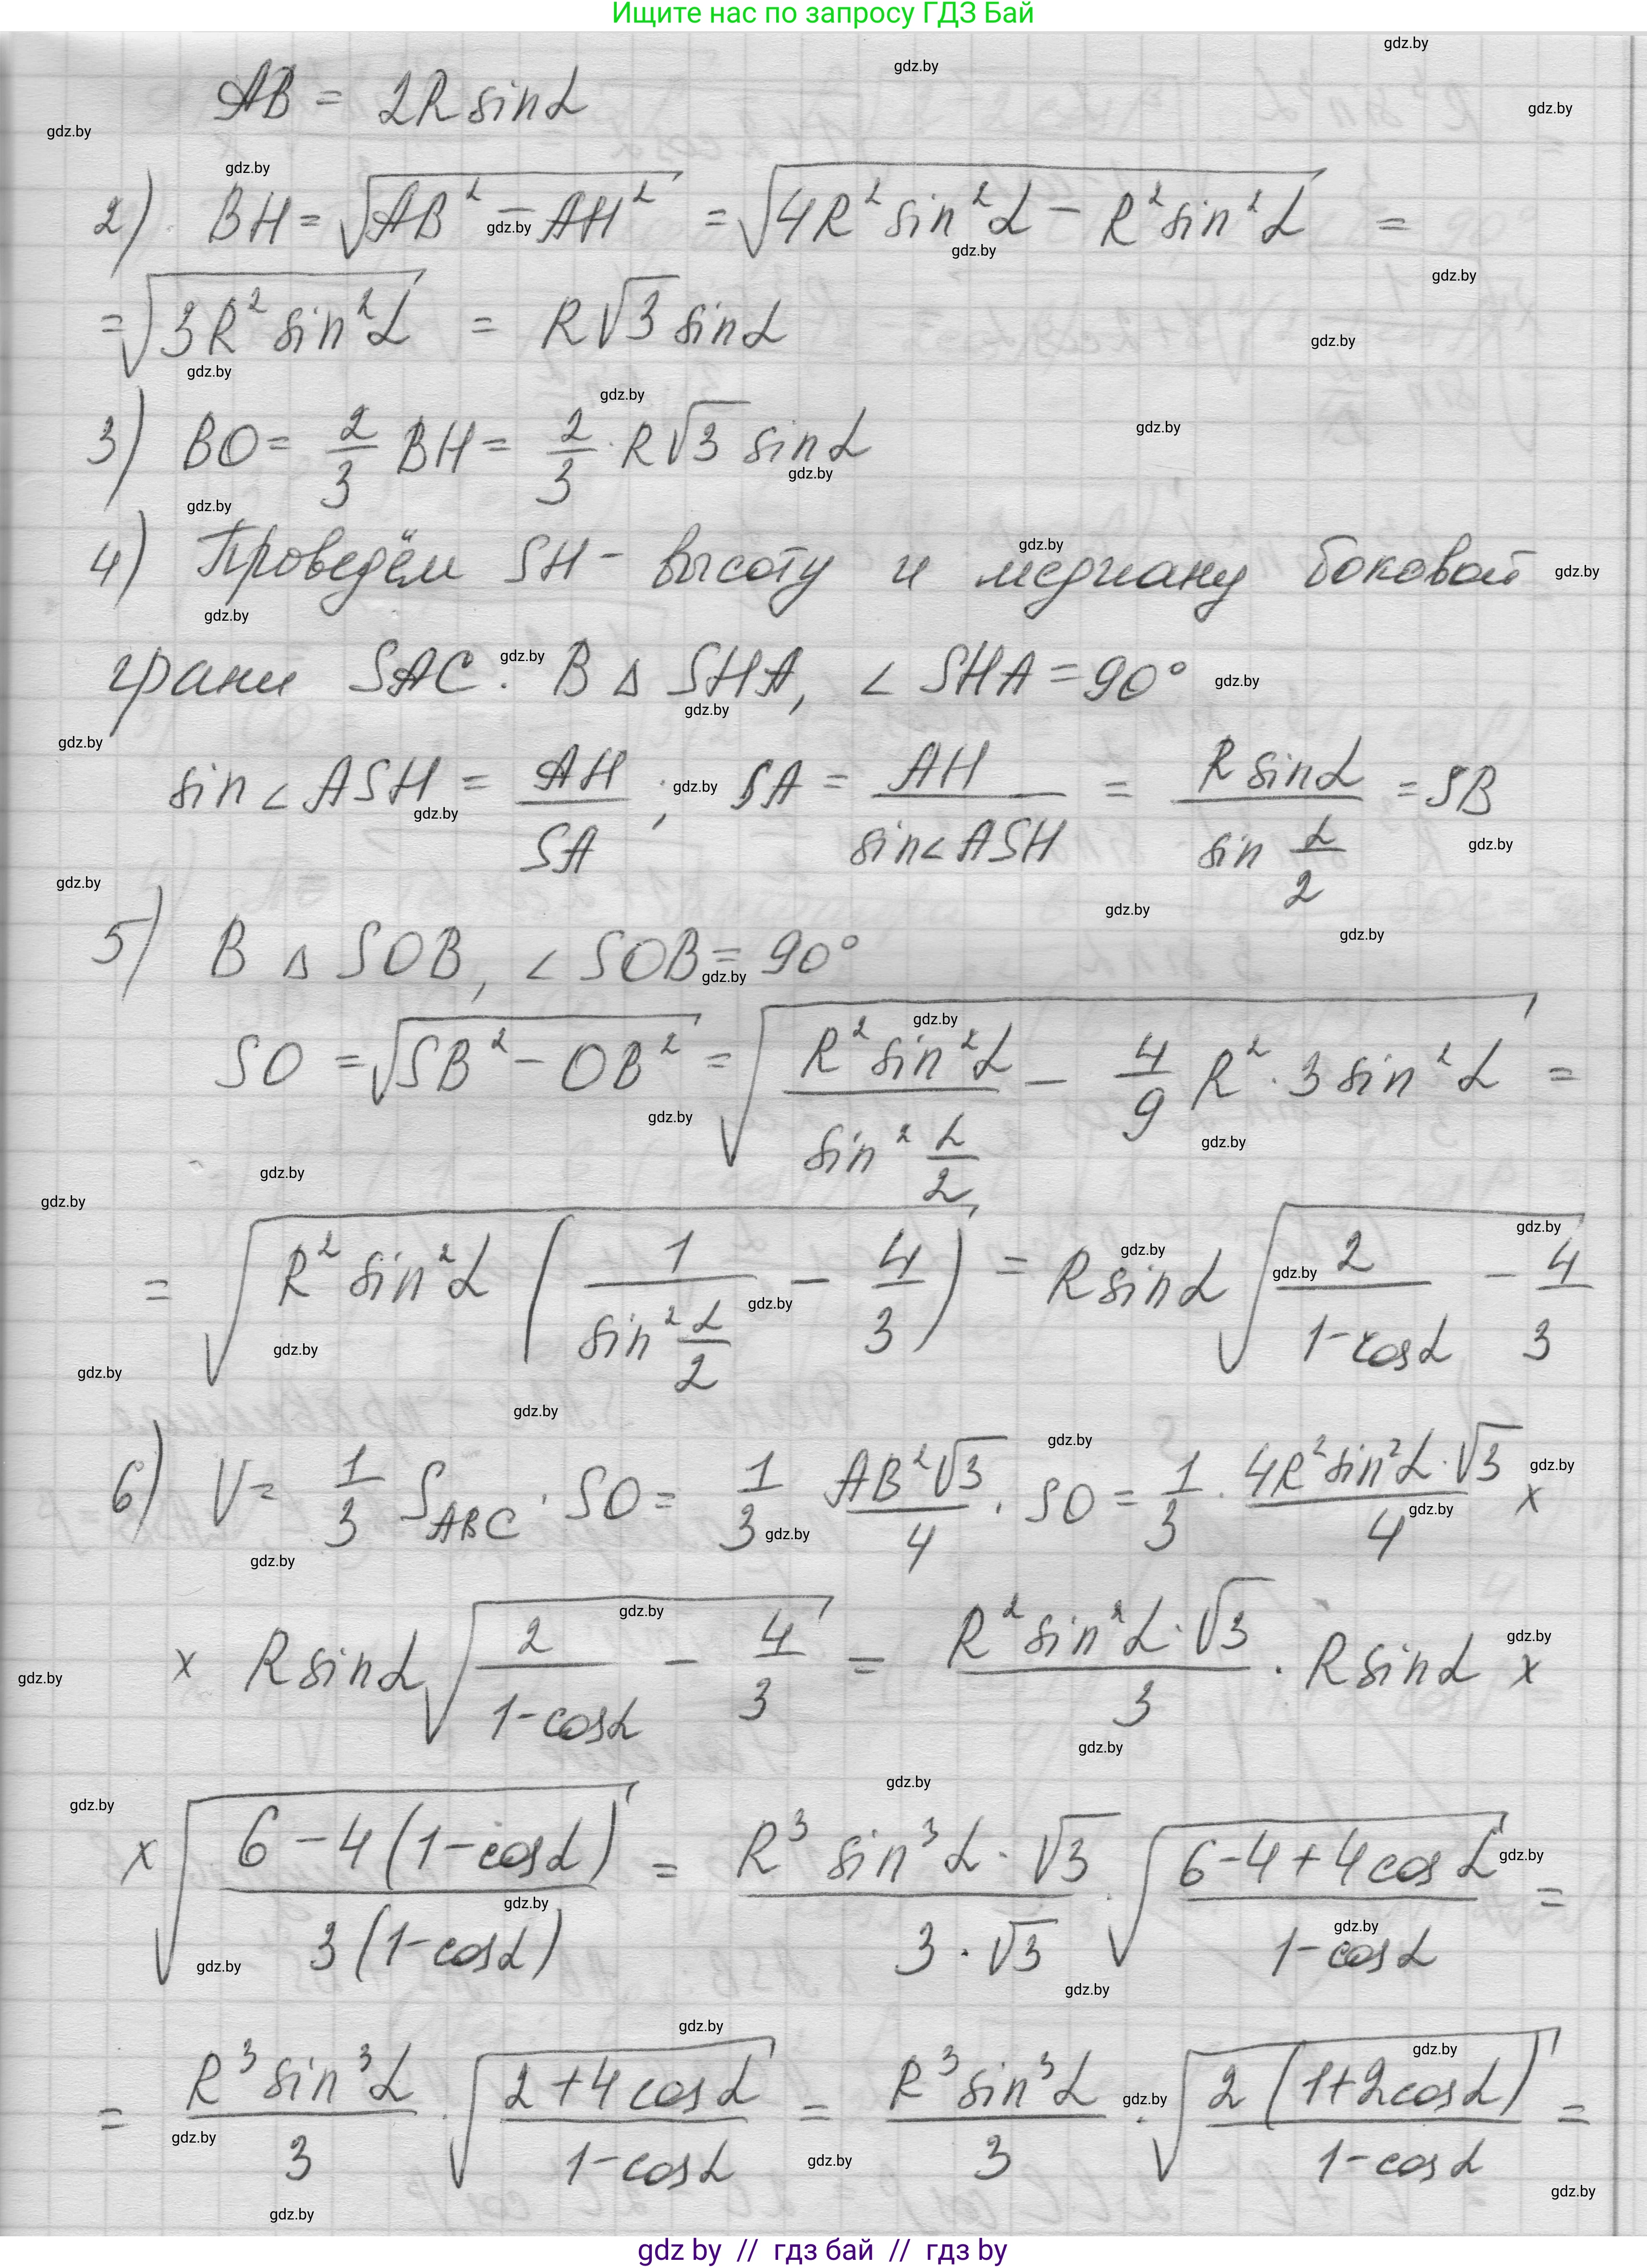 Ищите нас по запросу ГДЗ Бай
AB = 2R sinα
2) BH = √(AB² − AH²) = √(4R² sin²α − R² sin²α) =
= √(3R² sin²α) = R√3 sinα
3) BO = 2/3 BH = 2/3 · R√3 sinα
4) Проведём SH - высоту и медиану боковой
грани SAC. В Δ SHA, ∠ SHA = 90°
sin∠ASH = AH/SA ; SA = AH/sin∠ASH = R sinα/sin α/2 = SB
5) В Δ SOB, ∠ SOB = 90°
SO = √(SB² − OB²) = √(R² sin²α/sin² α/2 − 4/9 R² · 3 sin²α) =
= √(R² sin²α (1/sin² α/2 − 4/3)) = R sinα √(2/(1−cosα) − 4/3)
6) V = 1/3 S_ABC · SO = 1/3 AB²√3/4 · SO = 1/3 · 4R² sin²α · √3/4 ×
× R sinα √(2/(1−cosα) − 4/3) = R² sin²α · √3/3 · R sinα ×
× √((6−4(1−cosα))/(3(1−cosα))) = R³ sin³α · √3/(3 · √3) · √((6−4+4cosα)/(1−cosα)) =
= R³ sin³α/3 · √((2+4cosα)/(1−cosα)) = R³ sin³α/3 · √(2(1+2cosα)/(1−cosα)) =
gdz by // гдз бай // гдз by